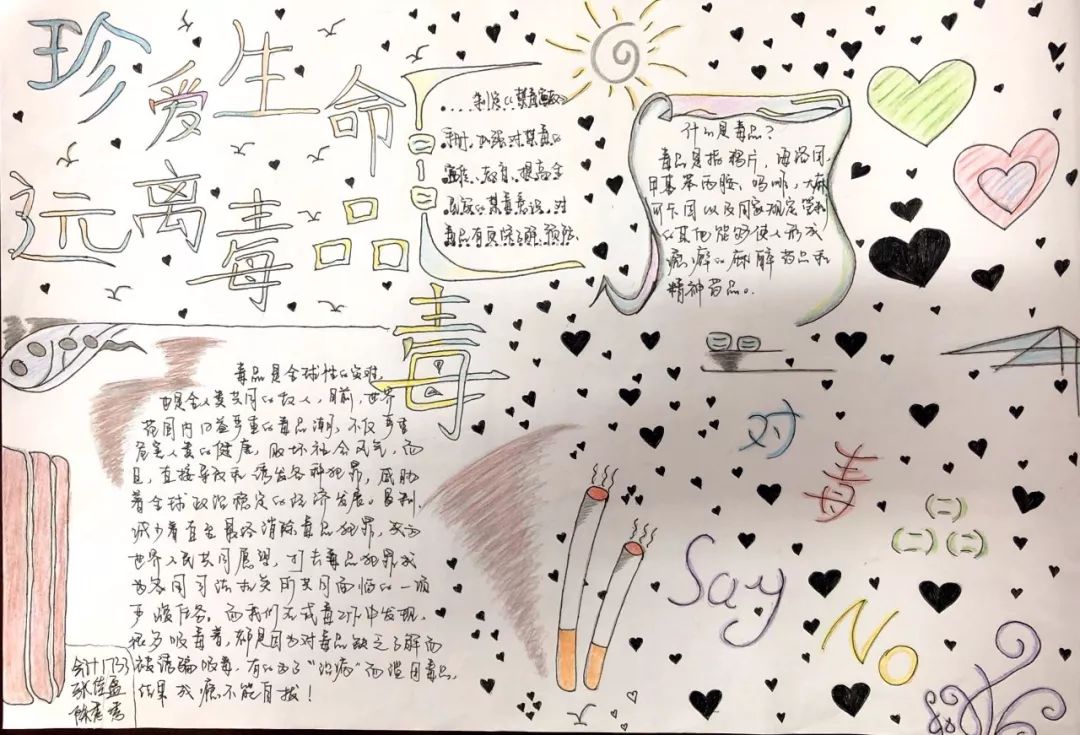 珍爱生命
远离毒品
制定的禁毒
同时,加强对禁毒的
宣传、教育,提高全
民族的禁毒意识,对
毒品有更深了解、预防.
什么是毒品?
毒品是指鸦片,海洛因,
甲基苯丙胺、吗啡,大麻
可卡因以及国家规定管制
的其他能够使人形成
瘾癖的麻醉药品和
精神药品。
毒
毒品是全球性的灾难,
也是全人类共同的敌人,目前,世界
范围内日益严重的毒品潮,不仅严重
危害人类的健康,败坏社会风气,而
且,直接导致和诱发各种犯罪,威胁
着全球政治稳定的经济发展。
减少着直至最终消除毒品犯罪,
世界人民共同愿望,打击毒品犯罪成
为各国司法
共同面临的一项
任务。而我们在戒毒工作中发现,
很多吸毒者,都是因为对毒品缺乏了解而
被诱骗吸毒,有的为了“治疗”而滥用毒品,
结果成瘾不能自拔!
会计
对毒品
Say
No